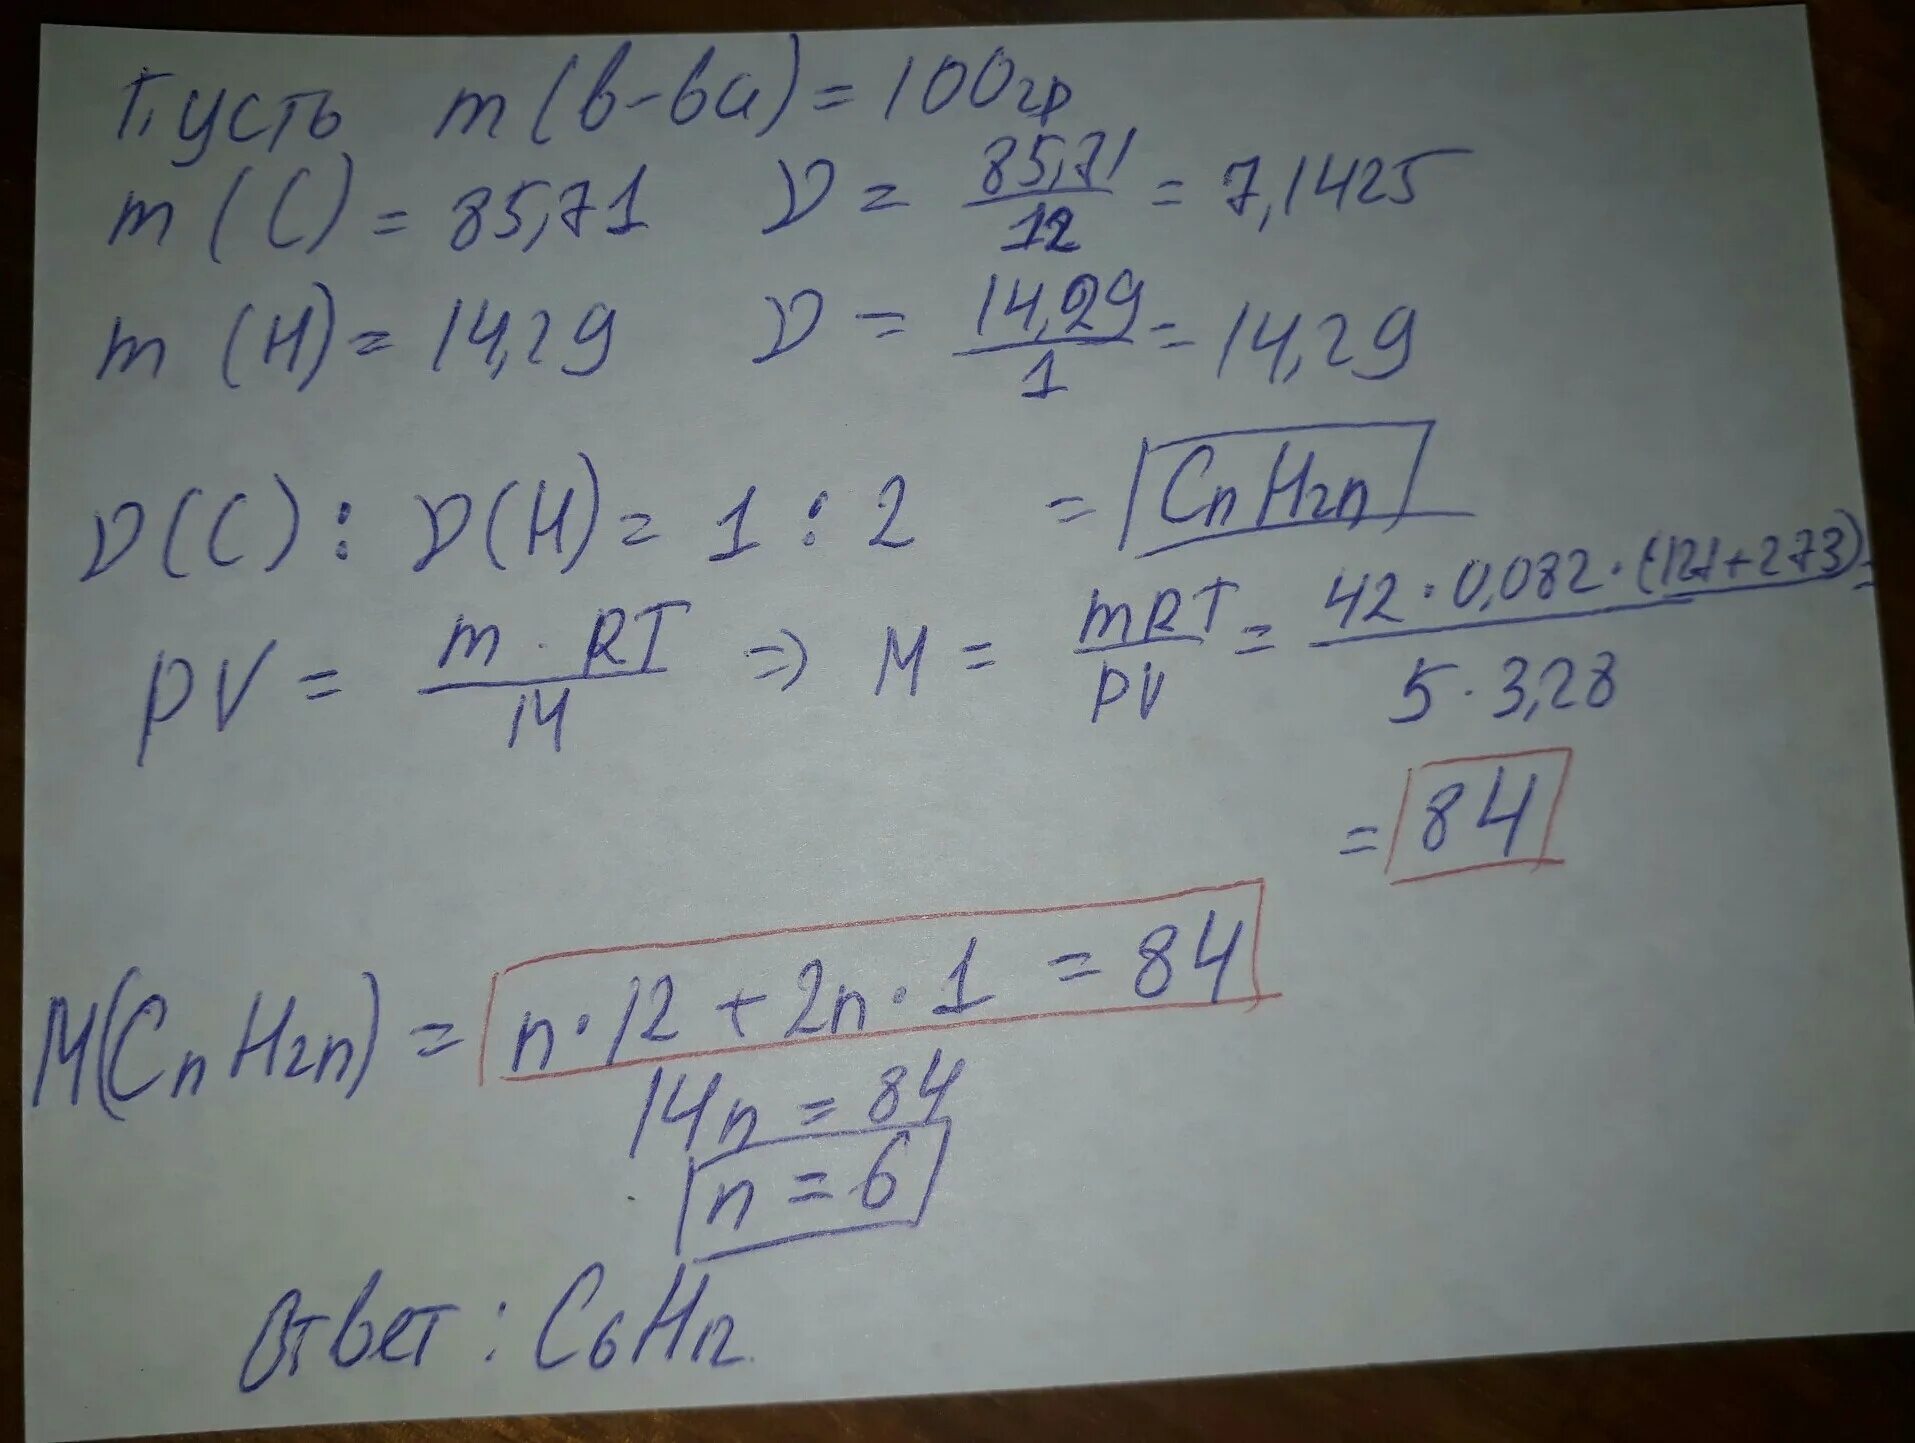 Пусть m(в-ва) = 100гр
m(C) = 85,71 ν = 85,71/12 = 7,1425
m(H) = 14,29 ν = 14,29/1 = 14,29
ν(C) : ν(H) = 1 : 2 = CnH2n
PV = m · RT/M => M = mRT/PV = 42 · 0,082 · (127+273)/5 · 3,28 =
= 84
M(CnH2n) = n · 12 + 2n · 1 = 84
14n = 84
n = 6
Ответ : C6H12.